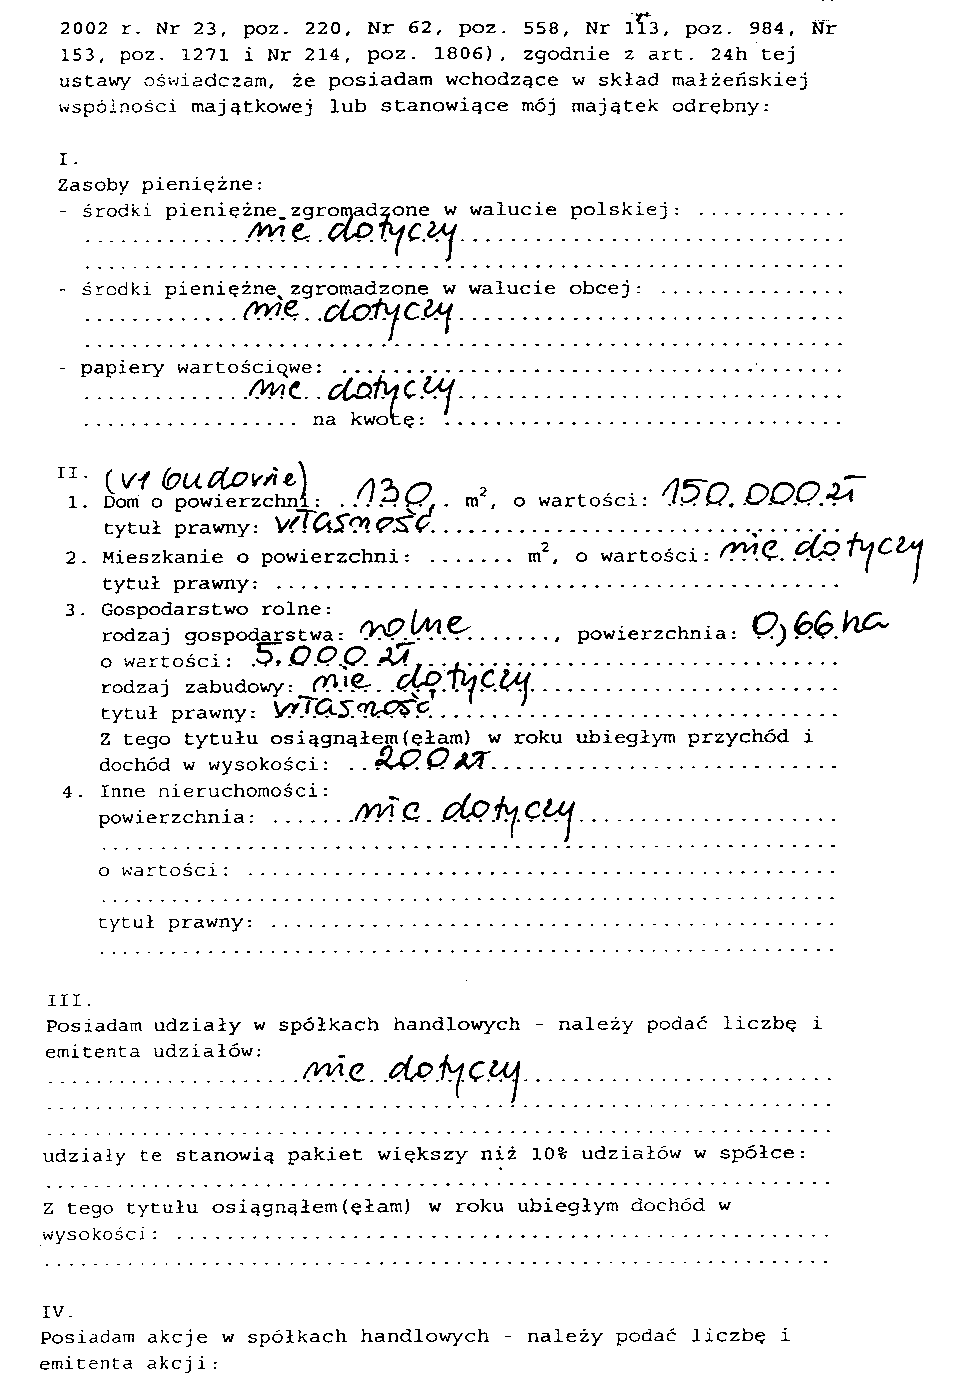 2002 r. Nr 23, poz. 220, Nr 62, poz. 558, Nr 113, poz. 984, Nr
153, poz. 1271 i Nr 214, poz. 1806), zgodnie z art. 24h tej
ustawy oświadczam, że posiadam wchodzące w skład małżeńskiej
wspólności majątkowej lub stanowiące mój majątek odrębny:
I.
Zasoby pieniężne:
- środki pieniężne zgromadzone w walucie polskiej: ............
nie dotyczy
- środki pieniężne zgromadzone w walucie obcej: ...............
nie dotyczy
- papiery wartościowe: ........................................
nie dotyczy
.................. na kwotę: .................................
II. (w budowie)
1. Dom o powierzchni: 130 m², o wartości: 150.000 zł
tytuł prawny: własność
2. Mieszkanie o powierzchni: ....... m², o wartości: nie dotyczy
tytuł prawny: ..............................................
3. Gospodarstwo rolne:
rodzaj gospodarstwa: rolne ........, powierzchnia: 0,66 ha
o wartości: 5.000 zł
rodzaj zabudowy: nie dotyczy
tytuł prawny: własność
Z tego tytułu osiągnąłem(ęłam) w roku ubiegłym przychód i
dochód w wysokości: 200 zł
4. Inne nieruchomości:
powierzchnia: nie dotyczy
o wartości: ................................................
tytuł prawny: ..............................................
III.
Posiadam udziały w spółkach handlowych - należy podać liczbę i
emitenta udziałów:
nie dotyczy
udziały te stanowią pakiet większy niż 10% udziałów w spółce:
Z tego tytułu osiągnąłem(ęłam) w roku ubiegłym dochód w
wysokości: .....................................................
IV.
Posiadam akcje w spółkach handlowych - należy podać liczbę i
emitenta akcji: